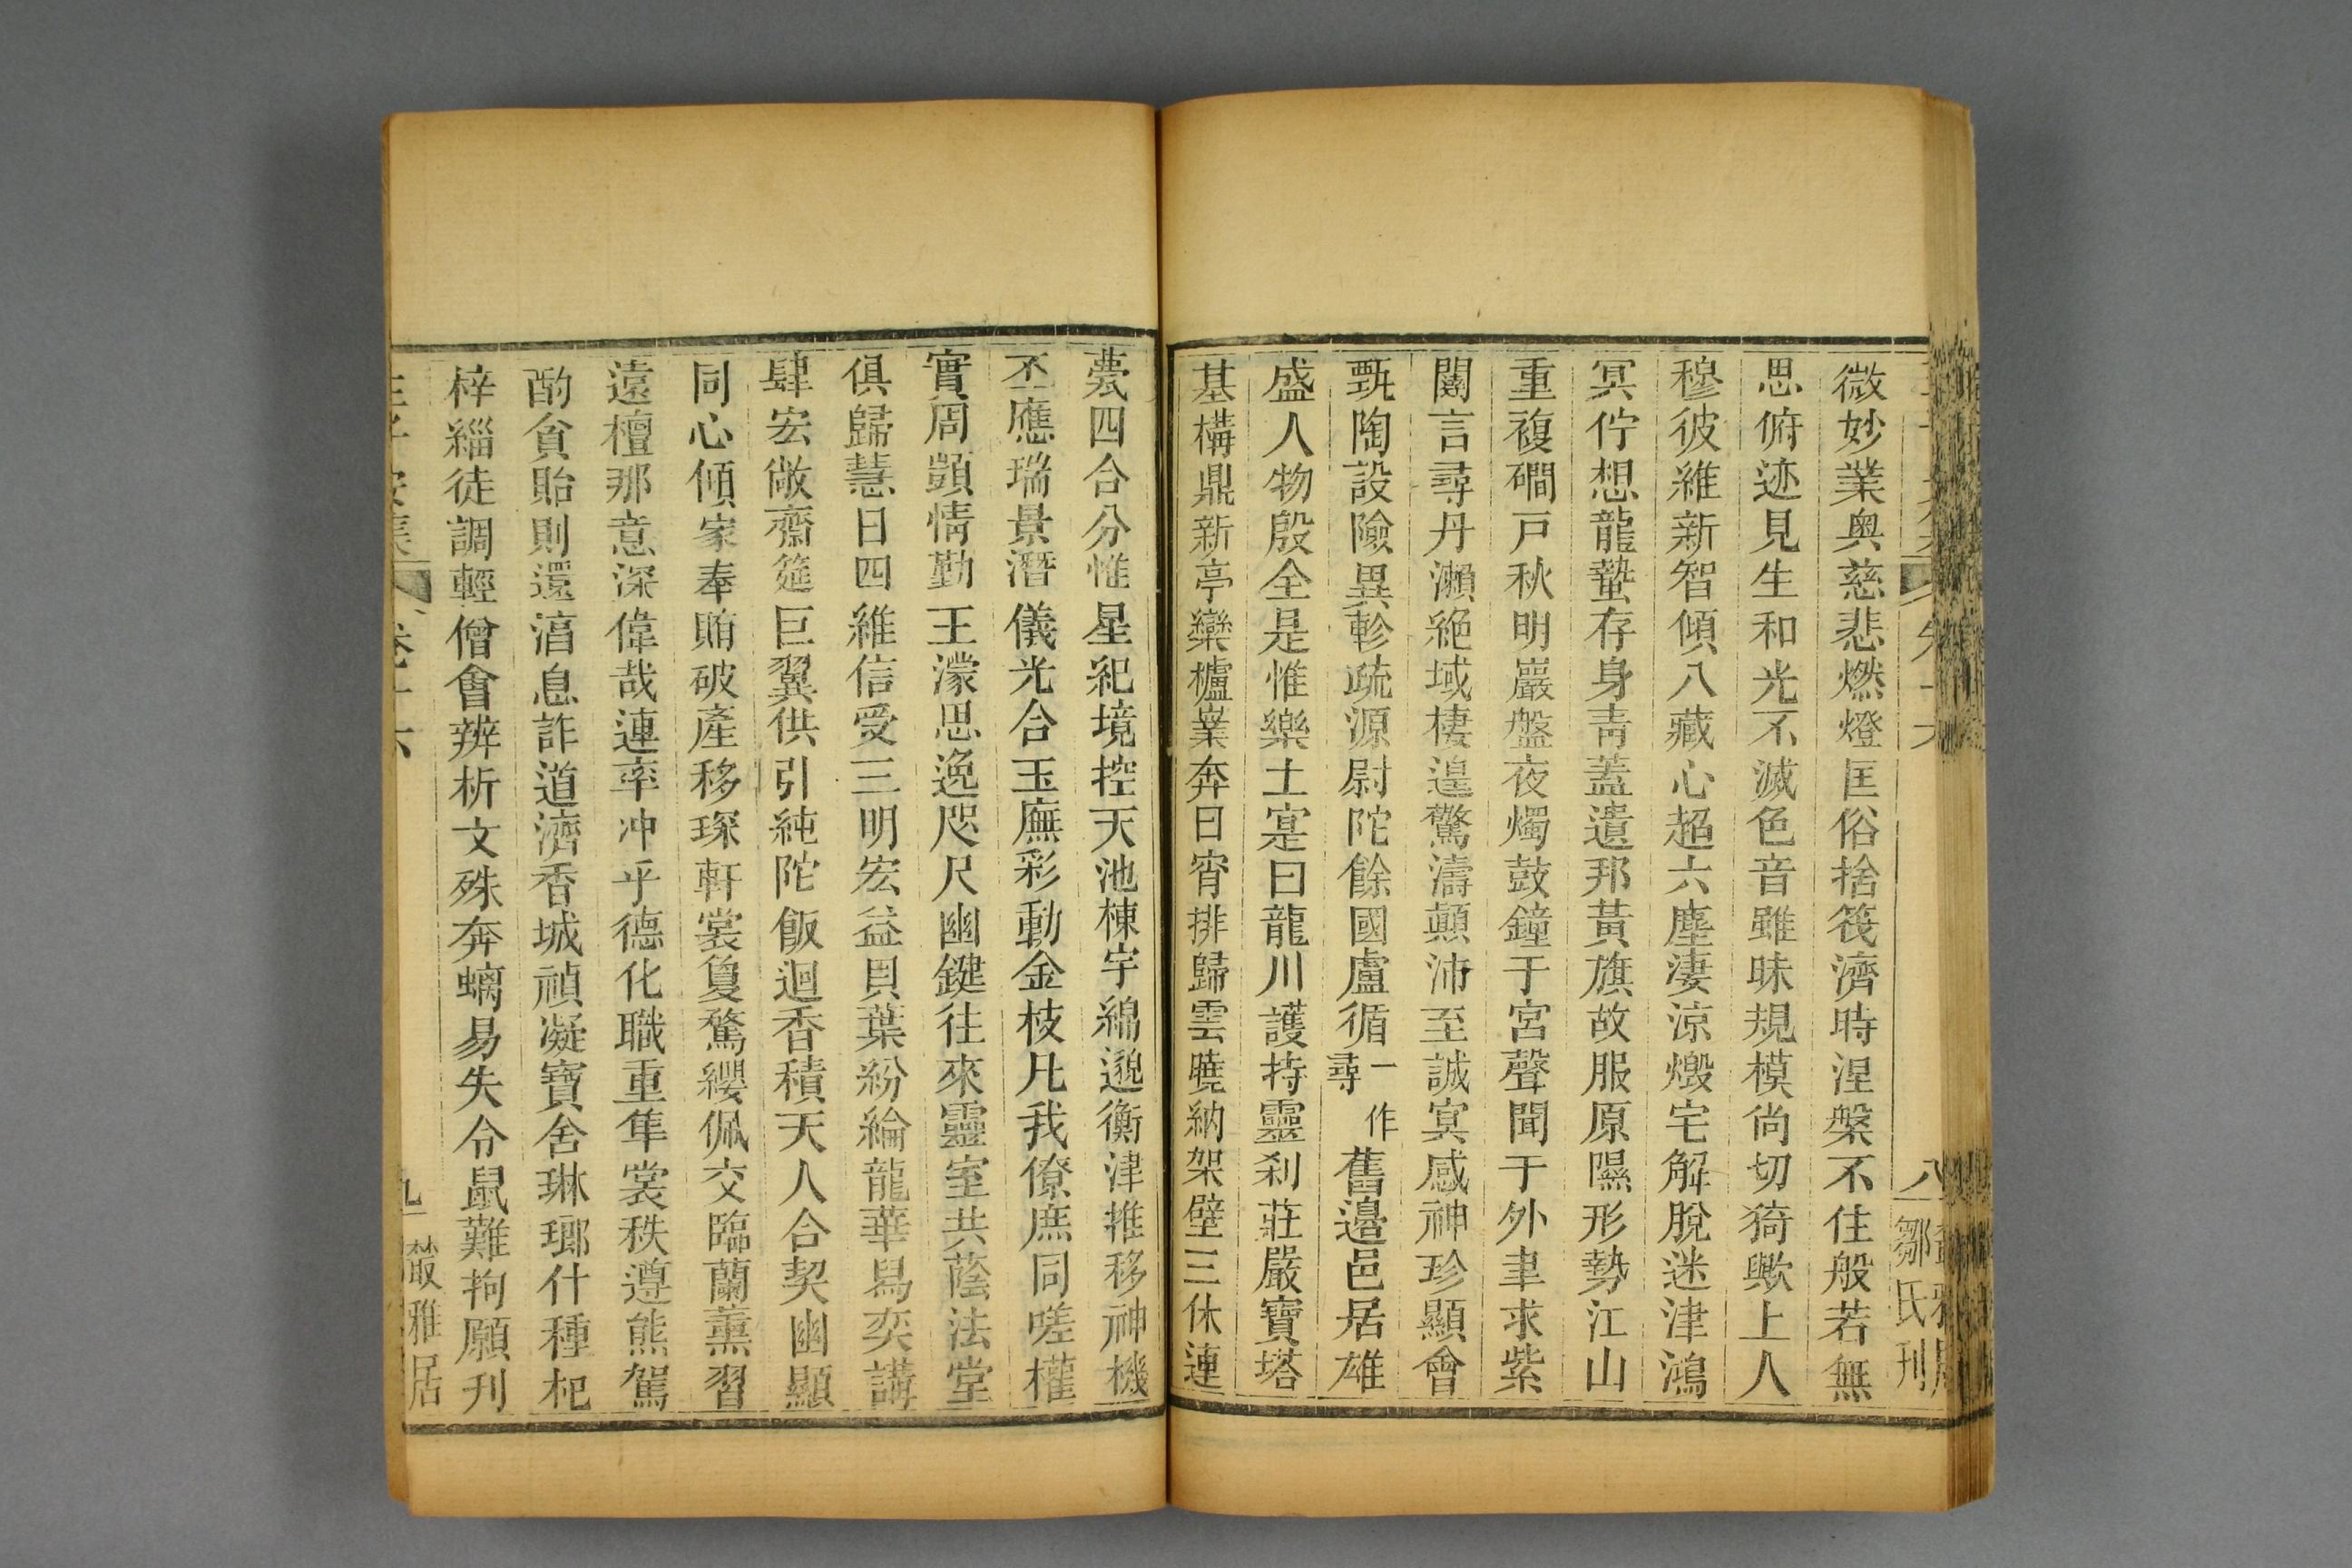 微妙業奥慈悲燃燈匡俗捨筏濟時涅槃不住般若無
思俯迹見生和光不滅色音雖昧規模尚切猗歟上人
穆彼維新智傾八藏心超六塵淒涼燬宅解脫迷津鴻
冥佇想龍蟄存身青蓋遺邦黃旗故服原隰形勢江山
重複磵戸秋明巖盤夜燭鼓鐘于宮聲聞于外聿求紫
闥言尋丹瀨絶域棲遑驚濤顛沛至誠冥感神珍顯會
甄陶設險異軫疏源尉陀餘國盧循一作尋舊邊邑居雄
盛人物殷全是惟樂土寔曰龍川護持靈刹莊嚴寶塔
基構鼎新亭欒櫨嶪奔日宵排歸雲曉納架壁三休連
甍四合分惟星紀境控天池棟宇綿邈衡津推移神機
丕應瑞景潛儀光合玉廡彩動金枝凡我僚庶同嗟權
實周顗情勤王濛思逸咫尺幽鍵往來靈室共蔭法堂
俱歸慧日四維信受三明宏益貝葉紛綸龍華舄奕講
肆宏敞齋筵巨翼供引純陀飯迴香積天人合契幽顯
同心傾家奉賄破產移琛軒裳敻騖纓佩交臨蘭薰習
遠檀那意深偉哉連率冲乎德化職重隼裳秩遵熊駕
酌貪貽則還淄息詐道濟香城禎凝寶舍琳瑯什種杞
梓緇徒調輕僧會辨析文殊奔螭易失令鼠難拘願刊
九
叢雅居
八
鄒氏刊